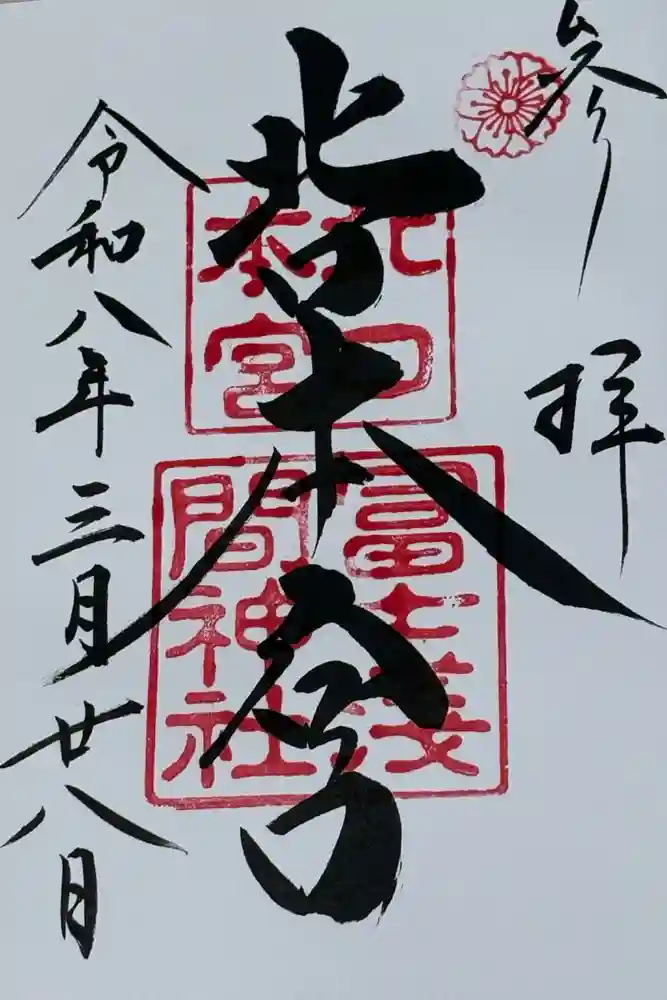 参拝
北口本宮
北口
本宮
冨士淺
間神社
令和八年三月廿八日